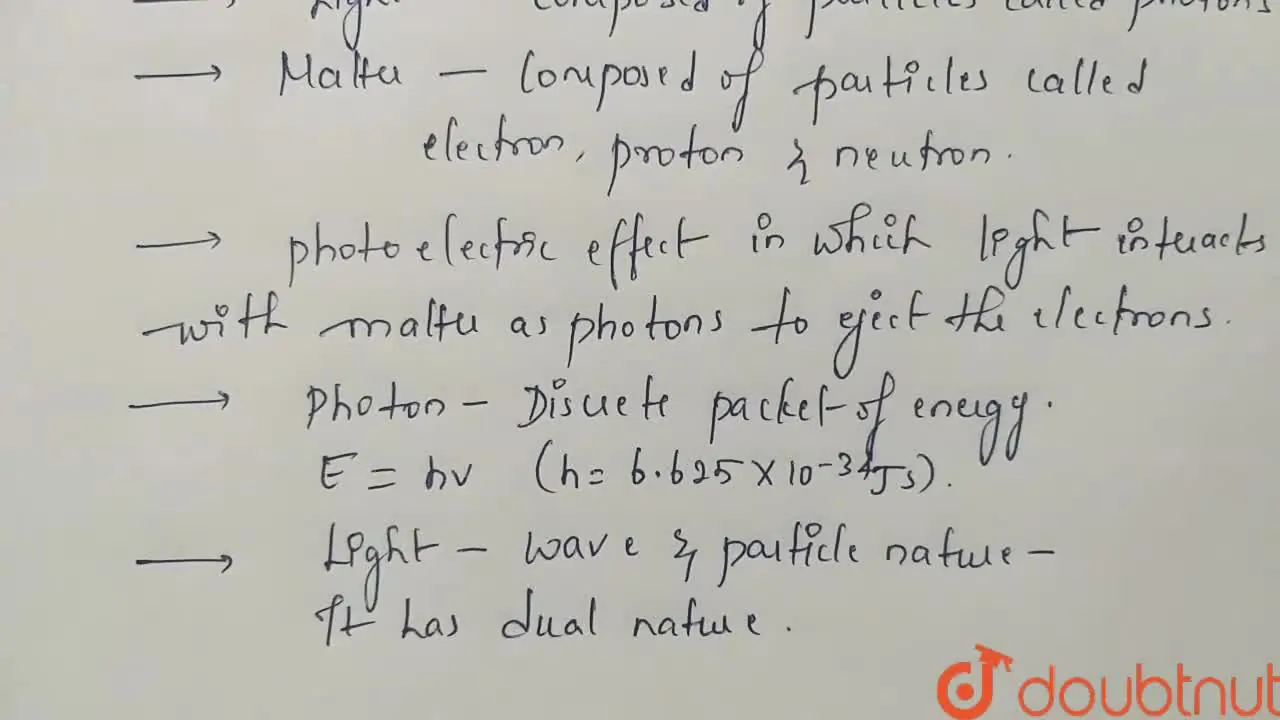 → Light composed of particles called photons
→ Matter – Composed of particles called
electron, proton & neutron.
→ photoelectric effect in which light interacts
with matter as photons to eject the electrons.
→ Photon – Discrete packet of energy.
E = hν (h = 6.625 × 10⁻³⁴Js).
→ Light – wave & particle nature –
It has dual nature.
doubtnut